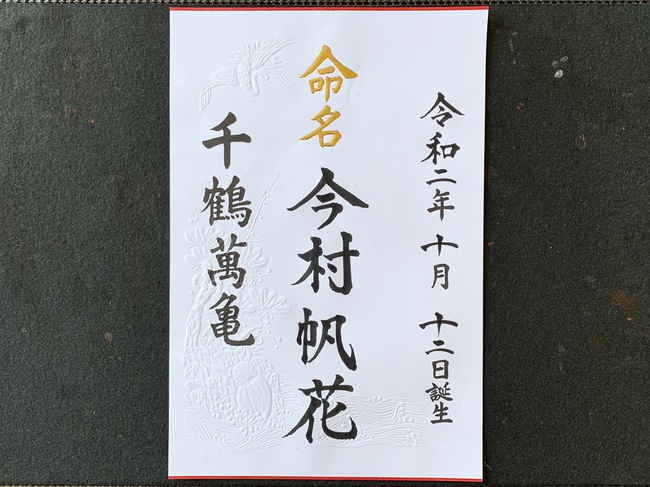 令和二年十月十二日誕生
命名
今村帆花
千鶴萬亀